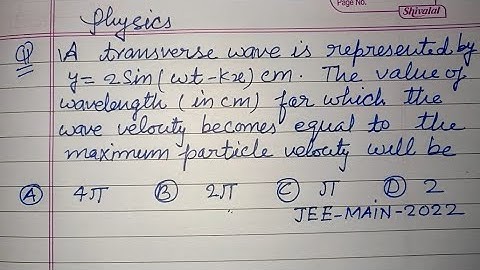 Physics
Page No.
Shivalal
Q1 A transverse wave is represented by
y = 2 Sin (ωt - kx) cm. The value of
wavelength (in cm) for which the
wave velouty becomes equal to the
maximum particle velocity will be
A 4π B 2π C π D 2
JEE-MAIN-2022